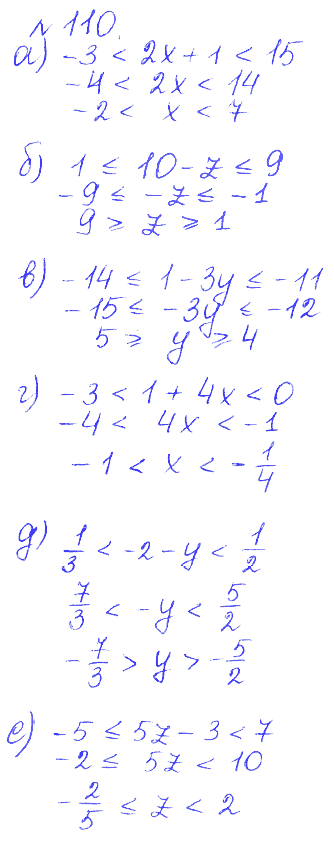 № 110.
а) -3 < 2x + 1 < 15
-4 < 2x < 14
-2 < x < 7
б) 1 ≤ 10 - z ≤ 9
-9 ≤ -z ≤ -1
9 ≥ z ≥ 1
в) -14 ≤ 1 - 3y ≤ -11
-15 ≤ -3y ≤ -12
5 ≥ y ≥ 4
г) -3 < 1 + 4x < 0
-4 < 4x < -1
-1 < x < -1/4
д) 1/3 < -2 - y < 1/2
7/3 < -y < 5/2
-7/3 > y > -5/2
е) -5 ≤ 5z - 3 < 7
-2 ≤ 5z < 10
-2/5 ≤ z < 2